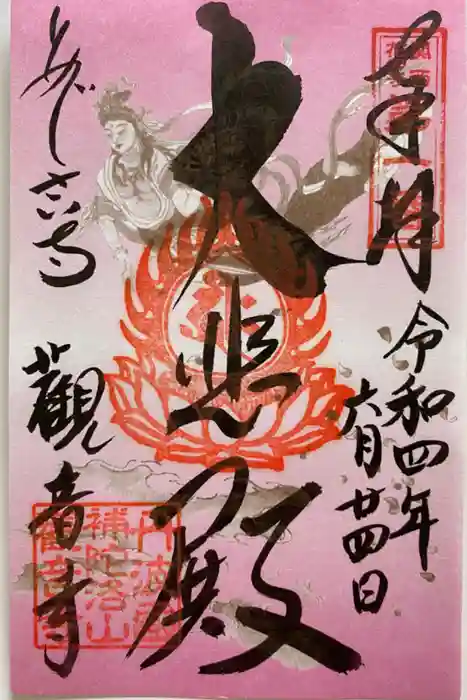 奉拝
令和四年
六月廿四日
大悲殿
あじさい寺
觀音寺
丹波國
補陀洛山
觀音寺